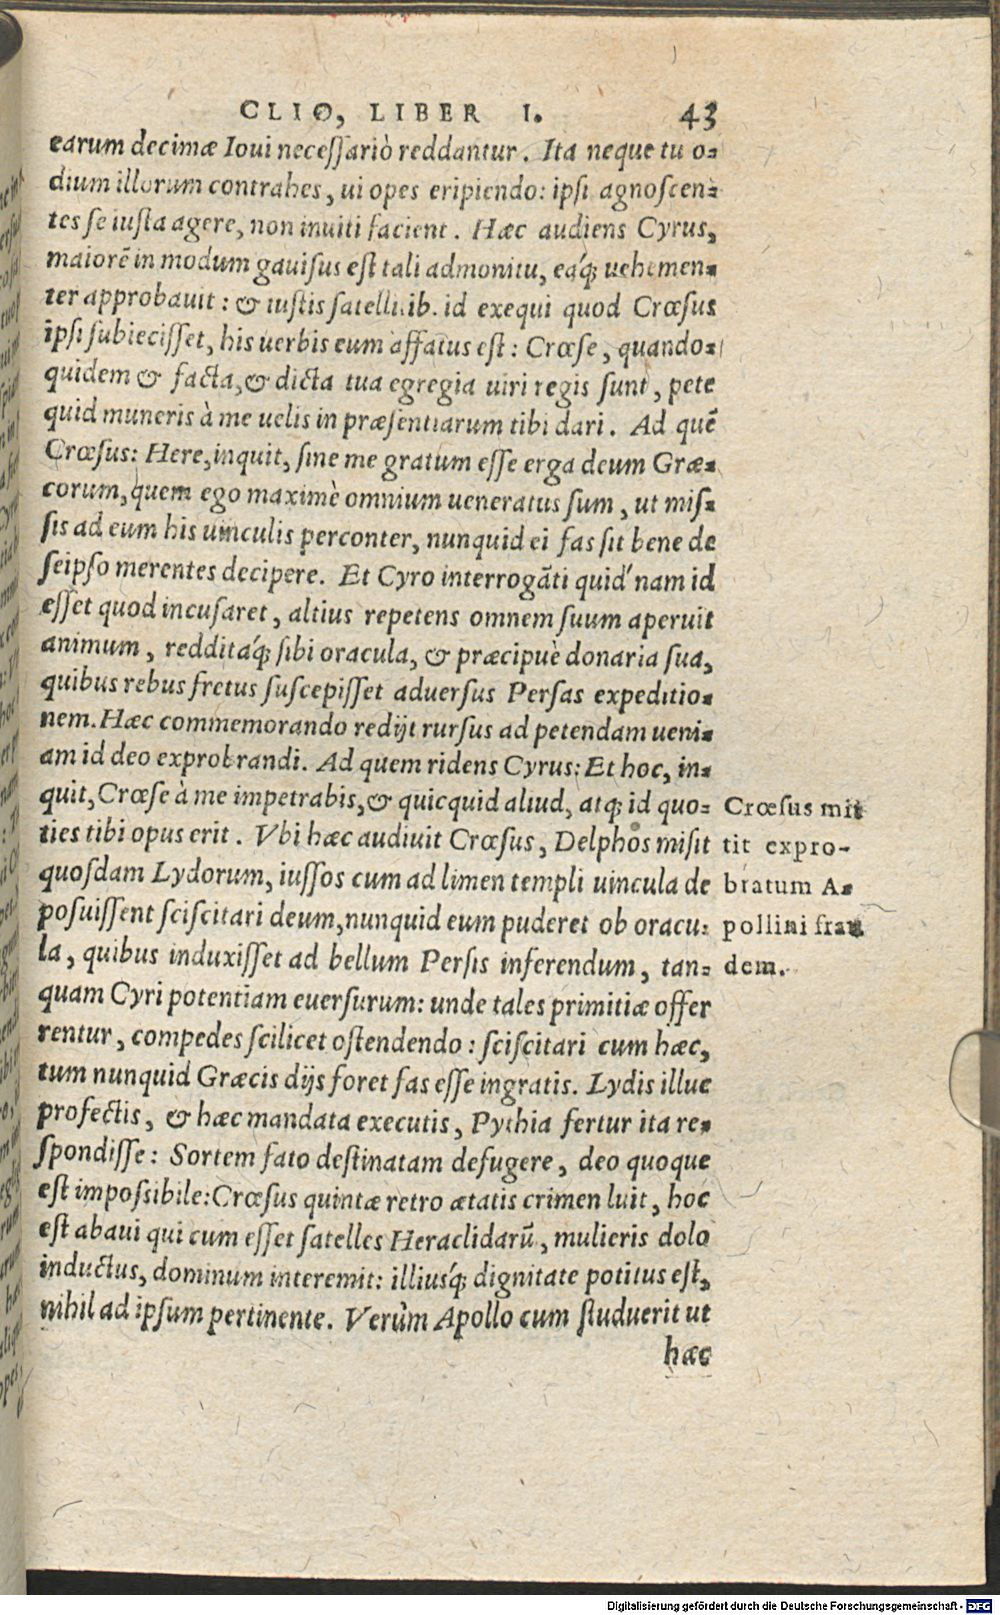 CLIO, LIBER I. 43
earum decimæ Ioui neceſſariò reddantur. Ita neque tu o-
dium illorum contrahes, ui opes eripiendo: ipſi agnoſcen-
tes ſe iuſta agere, non inuiti facient. Hæc audiens Cyrus,
maiorē in modum gauiſus eſt tali admonitu, eáq; uehemen-
ter approbauit: & iuſtis ſatellitib. id exequi quod Crœſus
ipſi ſubieciſſet, his uerbis eum affatus eſt: Crœſe, quando-
quidem & facta, & dicta tua egregia uiri regis ſunt, pete
quid muneris à me uelis in præſentiarum tibi dari. Ad quē
Crœſus: Here, inquit, ſine me gratum eſſe erga deum Græ-
corum, quem ego maximè omnium ueneratus ſum, ut miſ-
ſis ad eum his uinculis perconter, nunquid ei fas ſit bene de
ſeipſo merentes decipere. Et Cyro interrogāti quid'nam id
eſſet quod incuſaret, altius repetens omnem ſuum aperuit
animum, redditáq; ſibi oracula, & præcipuè donaria ſua,
quibus rebus fretus ſuſcepiſſet aduerſus Perſas expeditio-
nem. Hæc commemorando redijt rurſus ad petendam ueni-
am id deo exprobrandi. Ad quem ridens Cyrus: Et hoc, in-
quit, Crœſe à me impetrabis, & quicquid aliud, atq; id quo-
ties tibi opus erit. Vbi hæc audiuit Crœſus, Delphos miſit
quoſdam Lydorum, iuſſos cum ad limen templi uincula de
poſuiſſent ſciſcitari deum, nunquid eum puderet ob oracu-
la, quibus induxiſſet ad bellum Perſis inferendum, tan-
quam Cyri potentiam euerſurum: unde tales primitiæ offer
rentur, compedes ſcilicet oſtendendo: ſciſcitari cum hæc,
tum nunquid Græcis dijs foret fas eſſe ingratis. Lydis illuc
profectis, & hæc mandata executis, Pythia fertur ita re-
ſpondiſſe: Sortem fato deſtinatam defugere, deo quoque
eſt impoſsibile: Crœſus quintæ retro ætatis crimen luit, hoc
eſt abaui qui cum eſſet ſatelles Heraclidarū, mulieris dolo
inductus, dominum interemit: illiusq́; dignitate potitus eſt,
nihil ad ipſum pertinente. Verùm Apollo cum ſtuduerit ut
hæc
Crœſus mit
tit expro-
bratum A-
pollini frau
dem.
Digitalisierung gefördert durch die Deutsche Forschungsgemeinschaft - DFG